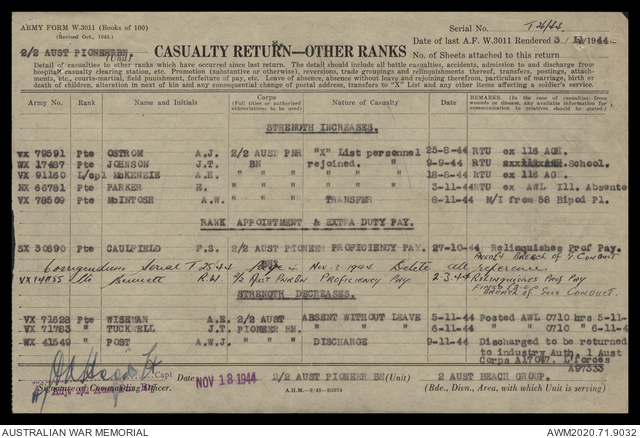 ARMY FORM W.3011 (Books of 100)
(Revised Oct., 1943.)
Serial No. T 26/44
2/2 AUST PIONEER BN.
(Unit)
CASUALTY RETURN—OTHER RANKS
Date of last A.F. W.3011 Rendered 3/11/1944
No. of Sheets attached to this return
Detail of casualties to other ranks which have occurred since last return. The detail should include all battle casualties, accidents, admission to and discharge from
hospital, casualty clearing station, etc. Promotion (substantive or otherwise), reversions, trade groupings and relinquishments thereof, transfers, postings, attach-
ments, etc., courts-martial, field punishment, forfeiture of pay, etc. Leave of absence, absence without leave and rejoining therefrom, particulars of marriage, birth or
death of children, alteration in next of kin and any consequential change of postal address, transfers to "X" List and any other items affecting a soldier's service.
Army No. Rank Name and Initials Corps (Full titles or authorised abbreviations to be used) Nature of Casualty Date of Casualty REMARKS. (In the case of casualties from wounds or disease, any available information for communication to relatives should be stated.)
STRENGTH INCREASES.
VX 79591 Pte OSTROM A.J. 2/2 AUST PNR "X" List personnel 25-8-44 RTU ex 116 AGH.
VX 17487 Pte JOHNSON J.T. BN rejoined. 9-9-44 RTU School.
VX 91160 L/cpl McKENZIE A.H. " " " " 18-8-44 RTU ex 116 AGH.
NX 66781 Pte PARKER E. " " " " 3-11-44 RTU ex AWL Ill. Absente
VX 78509 Pte McINTOSH A.W. " " " TRANSFER 8-11-44 M/I from 58 Bipod Pl.
RANK APPOINTMENT & EXTRA DUTY PAY.
SX 30590 Pte CAULFIELD F.S. 2/2 AUST PIONEER PROFICIENCY PAY. 27-10-44 Relinquishes Prof Pay.
BN. Breach of G. Conduct
Corrigendum Serial T 25 44 Page 2 Nov. 3 1944 Delete all reference
VX 14855 Pte Bennett R.W. 2/2 Aust Pnr Bn Proficiency Pay 2 3.44 Relinquishes Prof Pay
Breach of Good Conduct.
STRENGTH DECREASES.
VX 71628 Pte WISEMAN A.E. 2/2 AUST ABSENT WITHOUT LEAVE 5-11-44 Posted AWL 0710 hrs 5-11-
VX 71783 " TUCKWELL J.T. PIONEER BN. " " " 6-11-44 " " 0710 " 6-11-4
VX 41549 " POST A.W.J. " " DISCHARGE 9-11-44 Discharged to be returned
to industry Auth. 1 Aust
Corps A17047. L'forces
A97333
Capt
Signature of Commanding Officer.
Date NOV 13 1944
2/2 AUST PIONEER BN (Unit)
2 AUST BEACH GROUP.
(Bde., Divn., Area, with which Unit is serving)
AUSTRALIAN WAR MEMORIAL
AWM2020.71.9032